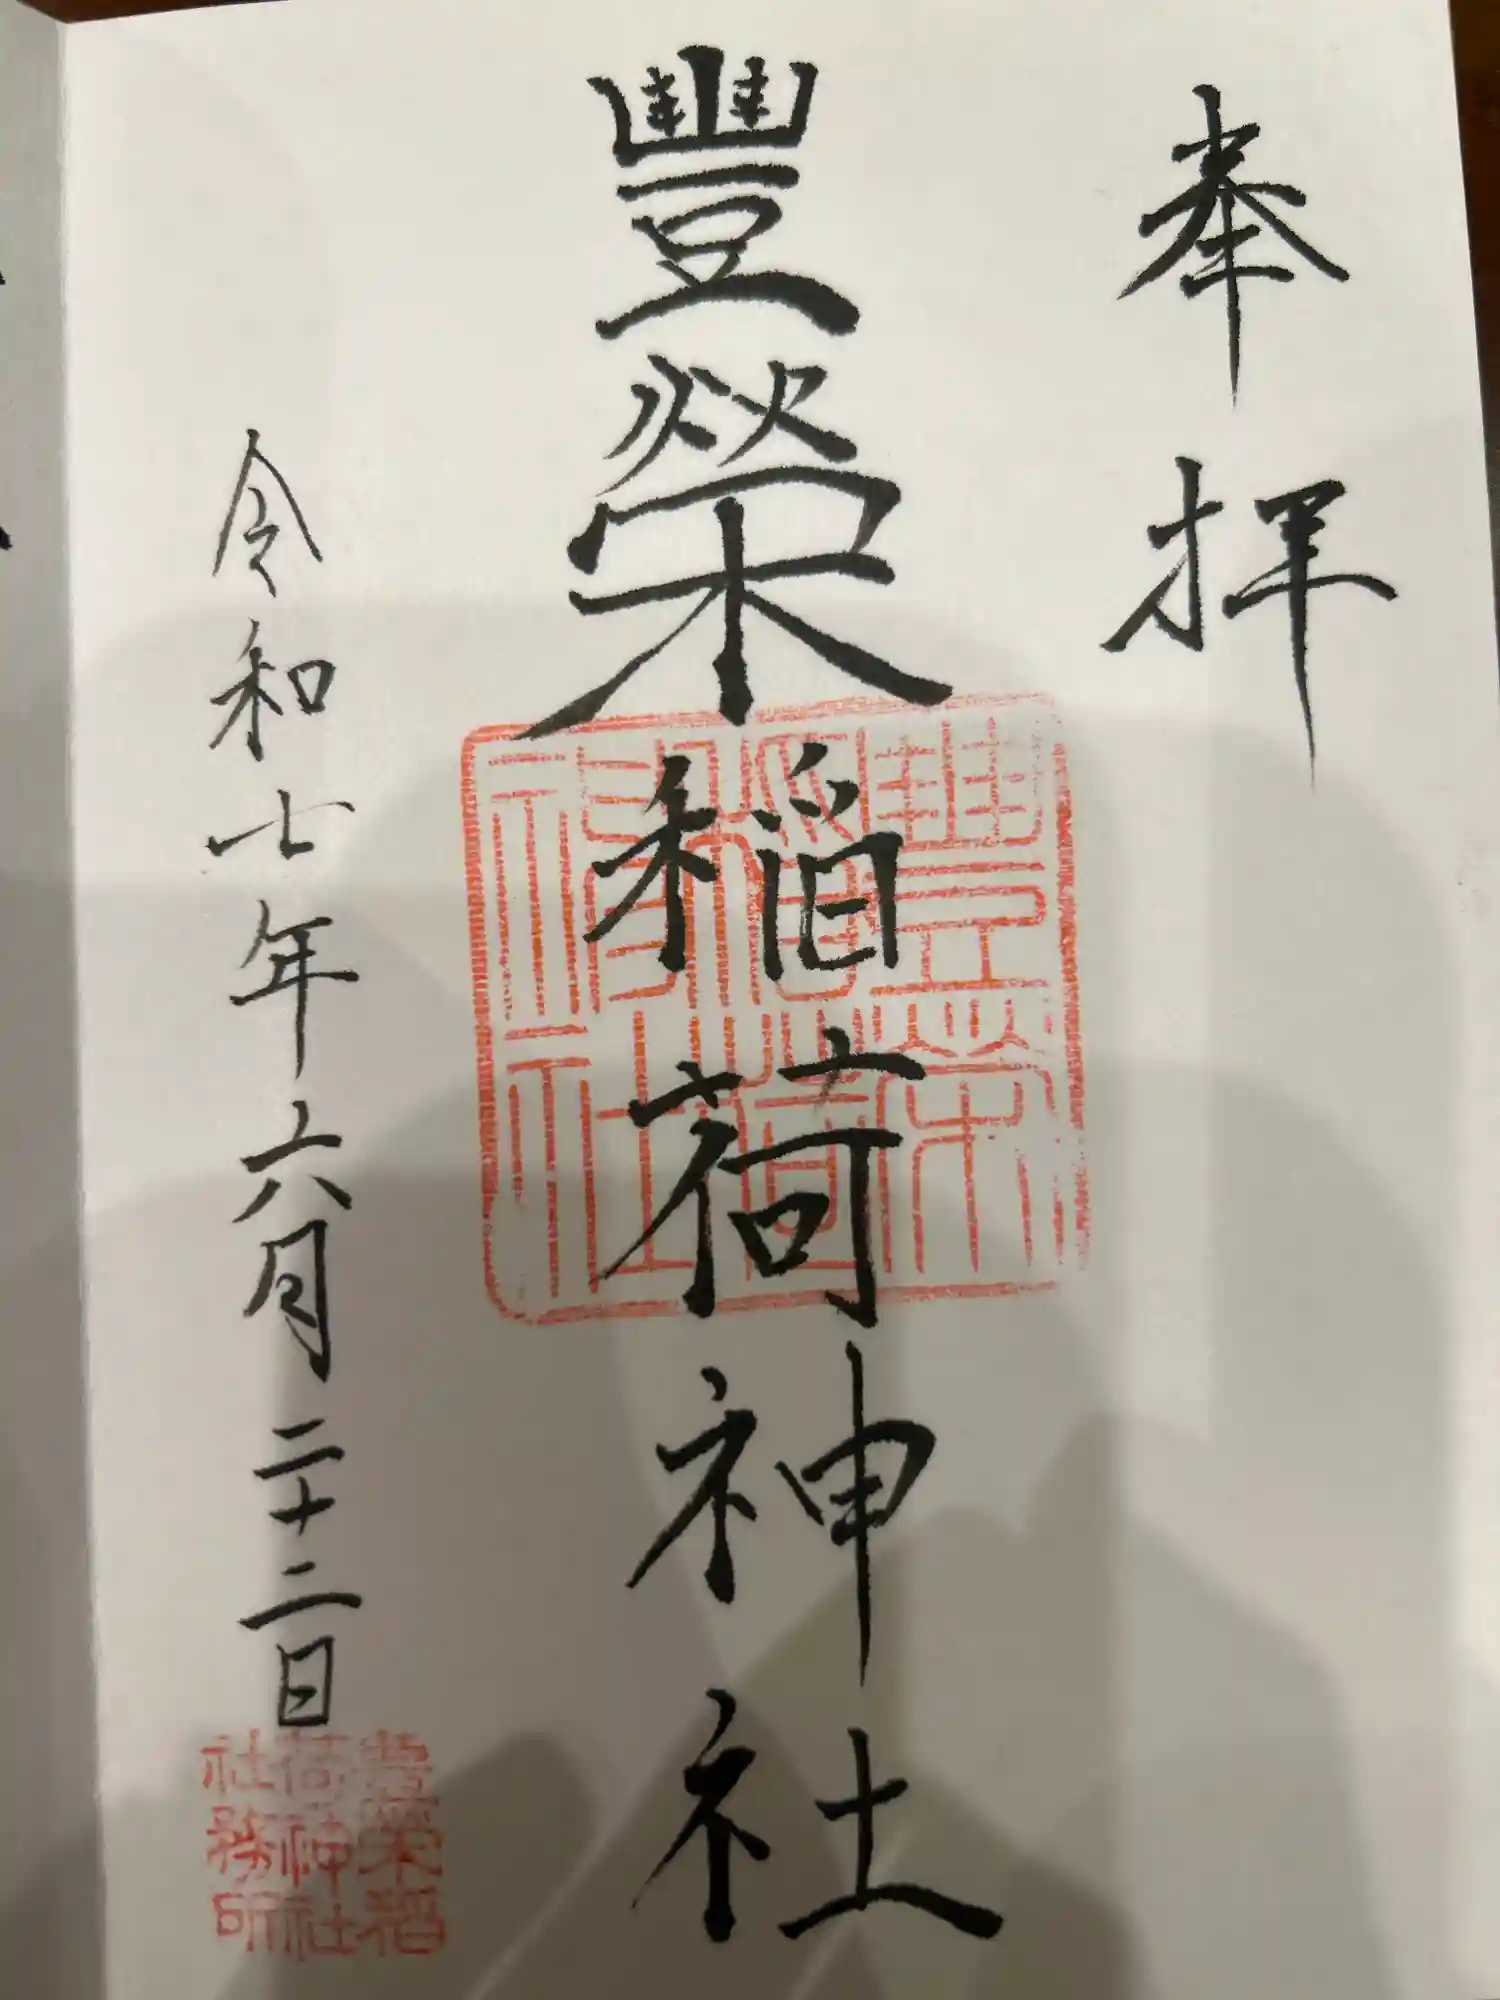 奉拝
豐榮稲荷神社
令和七年六月二十二日
豊栄稲荷神社
豊榮稲荷神社社務所